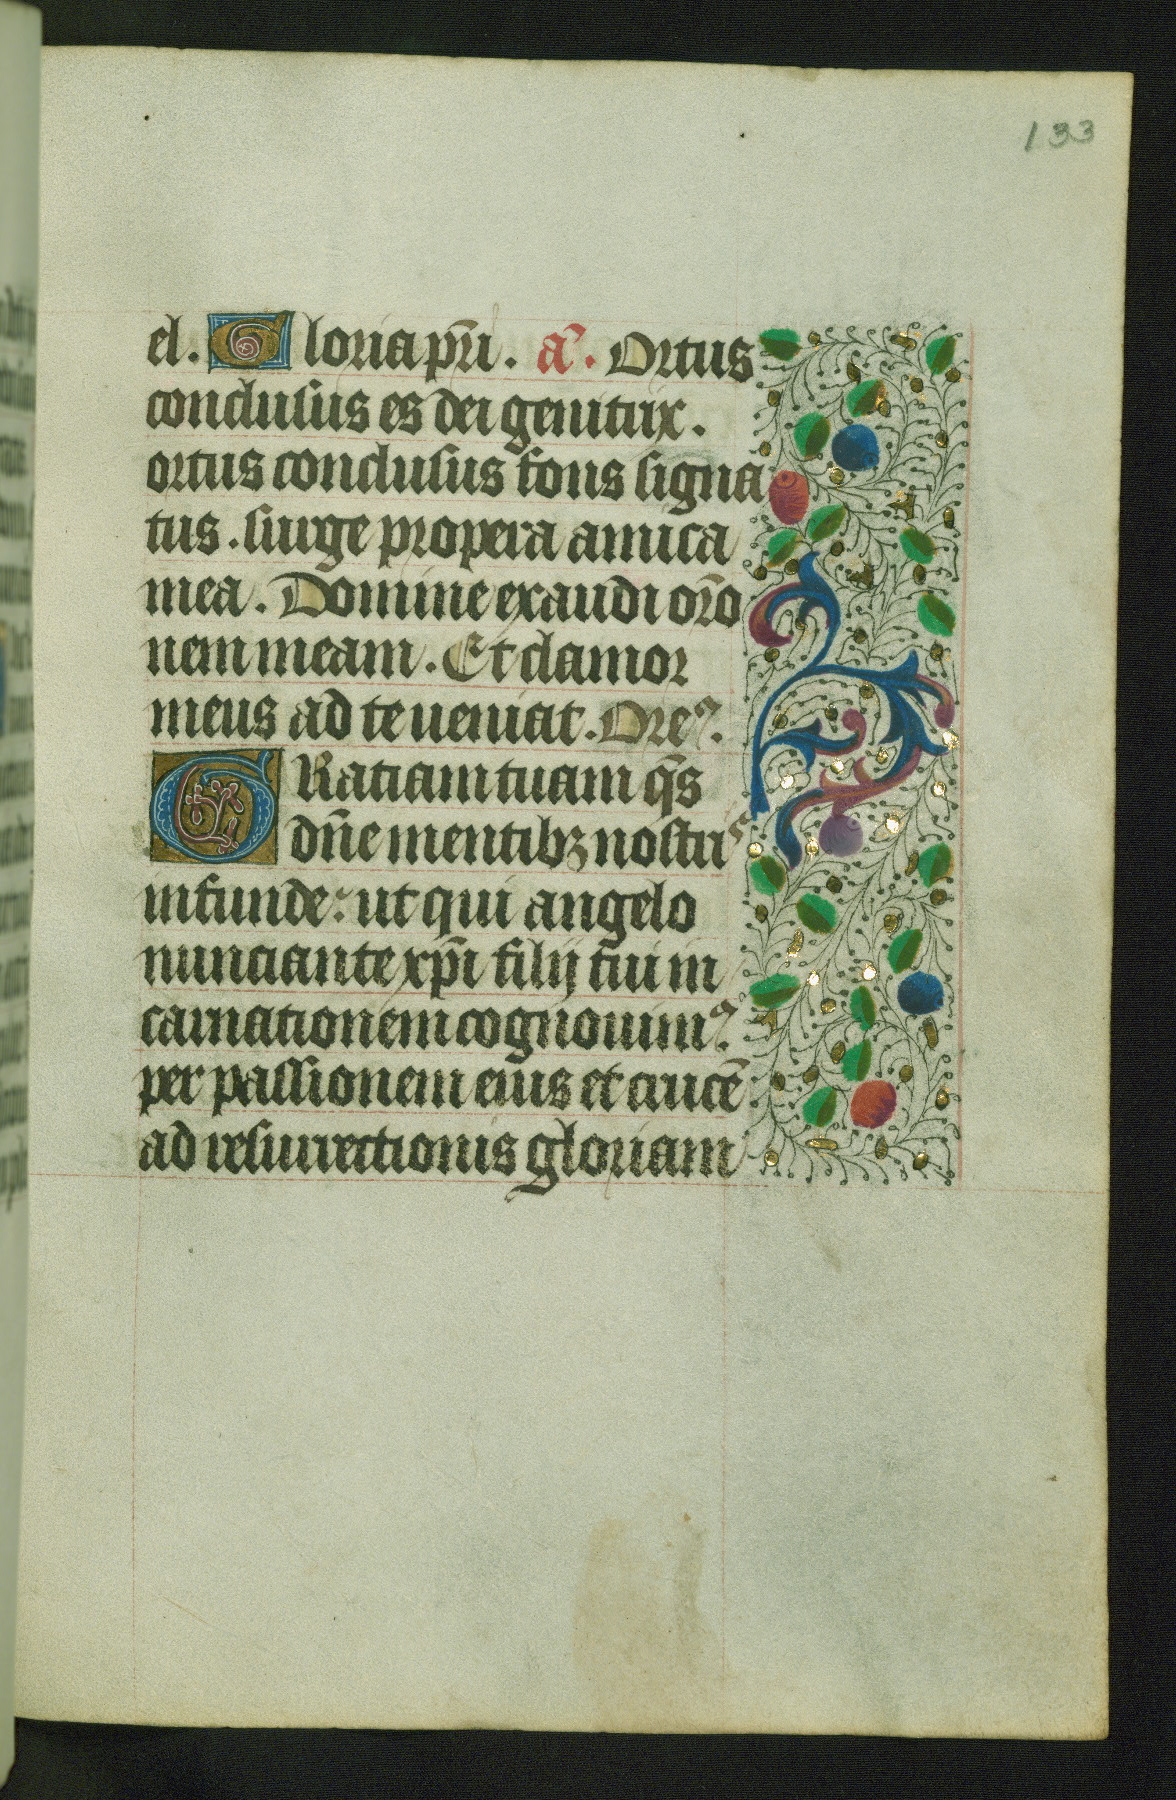 133
el. Gloria pr̄i. a᷈. Ortus
conclusus es dei genitrix.
ortus conclusus fons signa
tus. surge propera amica
mea. Domine exaudi or̄o
nem meam. Et clamor
meus ad te ueniat. Oreꝰ.
GRatiam tuam q̄s
dn̄e mentibꝫ nostris
infunde: ut qui angelo
nunciante xp̄i filij tui in
carnationem cognouimꝰ.
per passionem eius et crucē
ad resurrectionis gloriam